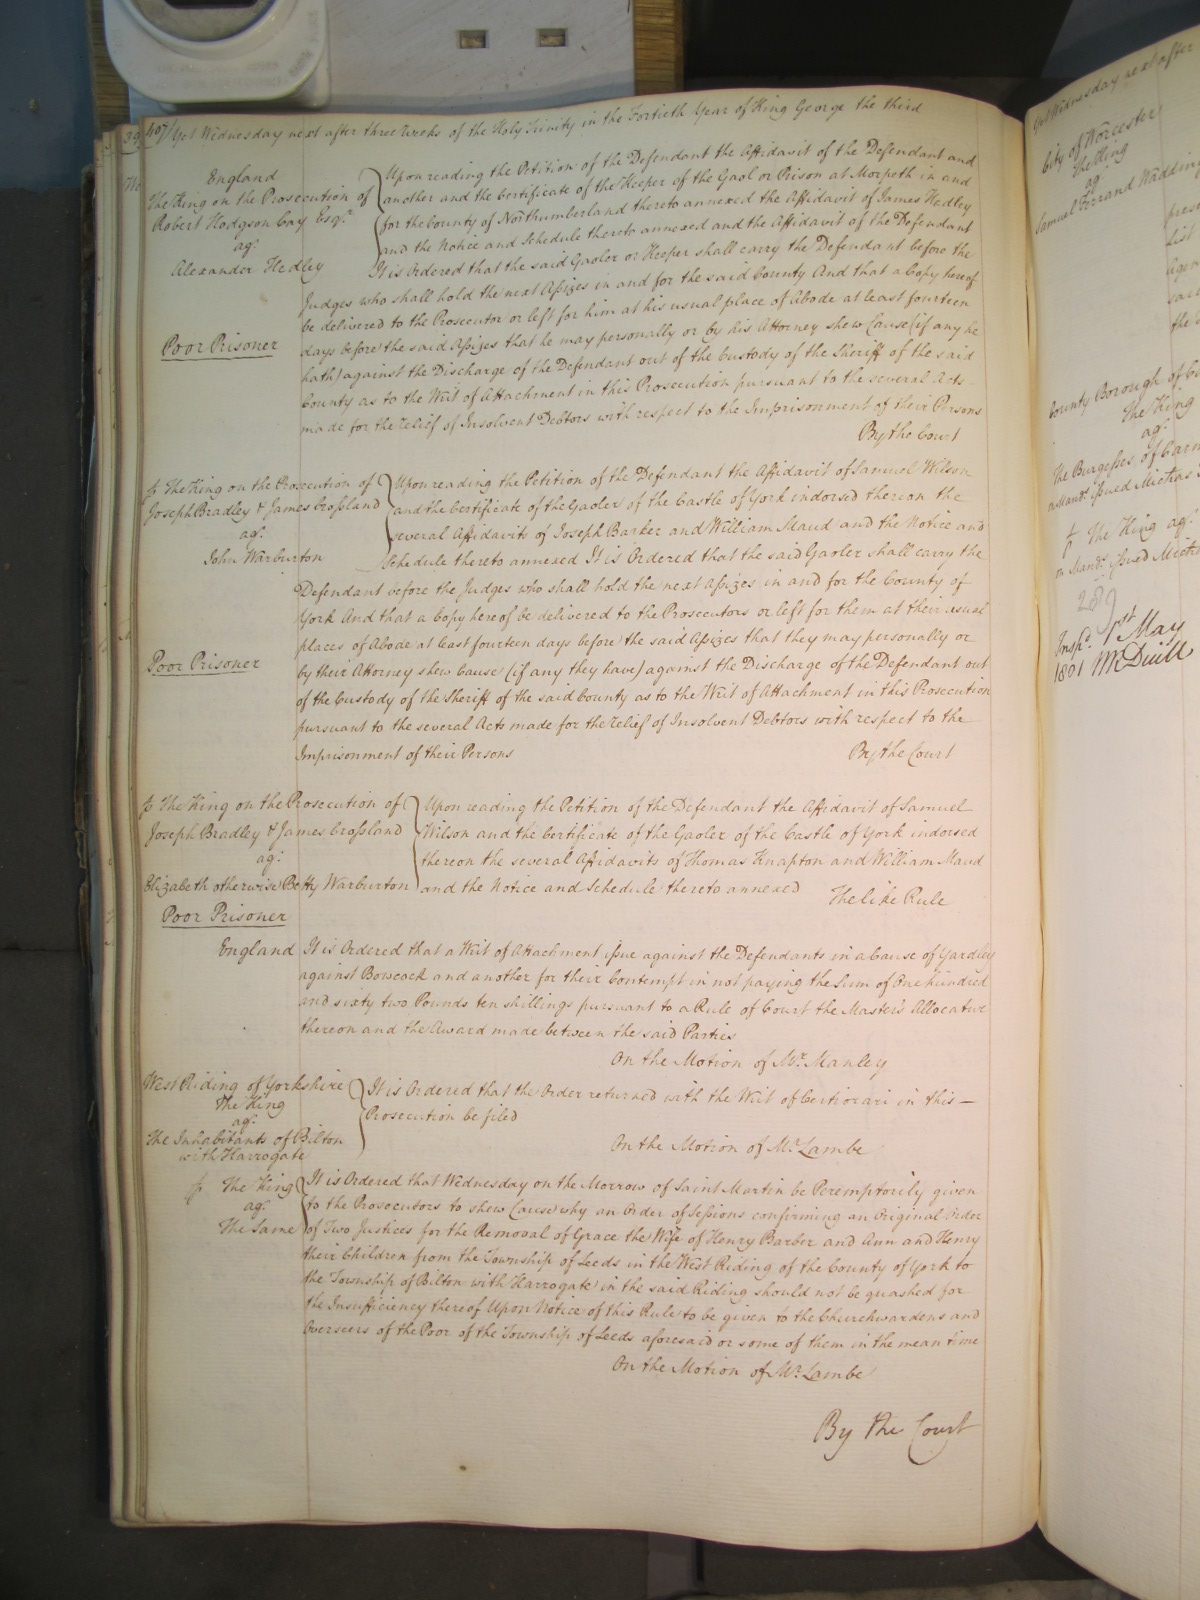 407 Yet Wednesday next after three Weeks of the Holy Trinity in the Fortieth Year of King George the third
England
The King on the Prosecution of
Robert Hodgson Cay Esqr.
agt.
Alexander Hedley
Poor Prisoner
Upon reading the Petition of the Defendant the Affidavit of the Defendant and
another and the Certificate of the Keeper of the Gaol or Prison at Morpeth in and
for the County of Northumberland thereto annexed the Affidavit of James Hedley
and the Notice and Schedule thereto annexed and the Affidavit of the Defendant
It is Ordered that the said Gaoler or Keeper shall carry the Defendant before the
Judges who shall hold the next Assizes in and for the said County And that a Copy hereof
be delivered to the Prosecutor or left for him at his usual place of Abode at least fourteen
days before the said Assizes that he may personally or by his Attorney shew Cause (if any he
hath) against the Discharge of the Defendant out of the Custody of the Sheriff of the said
County as to the Writ of Attachment in this Prosecution pursuant to the several Acts
made for the relief of Insolvent Debtors with respect to the Imprisonment of their Persons
By the Court
The King on the Prosecution of
Joseph Bradley & James Crossland
agt.
John Warburton
Poor Prisoner
Upon reading the Petition of the Defendant the Affidavit of Samuel Wilson
and the Certificate of the Gaoler of the Castle of York indorsed thereon the
several Affidavits of Joseph Barker and William Maud and the Notice and
Schedule thereto annexed It is Ordered that the said Gaoler shall carry the
Defendant before the Judges who shall hold the next Assizes in and for the County of
York And that a Copy hereof be delivered to the Prosecutors or left for them at their usual
places of Abode at least fourteen days before the said Assizes that they may personally or
by their Attorney shew Cause (if any they have) against the Discharge of the Defendant out
of the Custody of the Sheriff of the said County as to the Writ of Attachment in this Prosecution
pursuant to the several Acts made for the relief of Insolvent Debtors with respect to the
Imprisonment of their Persons
By the Court
The King on the Prosecution of
Joseph Bradley & James Crossland
agt.
Elizabeth otherwise Betty Warburton
Poor Prisoner
Upon reading the Petition of the Defendant the Affidavit of Samuel
Wilson and the Certificate of the Gaoler of the Castle of York indorsed
thereon the several Affidavits of Thomas Knapton and William Maud
and the Notice and Schedule thereto annexed
The like Rule
England
It is Ordered that a Writ of Attachment issue against the Defendants in a Cause of Yardley
against Bowcock and another for their Contempt in not paying the Sum of One hundred
and sixty two Pounds ten shillings pursuant to a Rule of Court the Master's Allocatur
thereon and the Award made between the said Parties
On the Motion of Mr. Manley
West Riding of Yorkshire
The King
agt.
The Inhabitants of Bilton
with Harrogate
It is Ordered that the Order returned with the Writ of Certiorari in this
Prosecution be filed
On the Motion of Mr. Lambe
The King
agt.
The Same
It is Ordered that Wednesday on the Morrow of Saint Martin be Peremptorily given
to the Prosecutors to shew Cause why an Order of Sessions confirming an Original Order
of Two Justices for the Removal of Grace the Wife of Henry Barber and Ann and Henry
their Children from the Township of Leeds in the West Riding of the County of York to
the Township of Bilton with Harrogate in the said Riding should not be quashed for
the Insufficiency thereof Upon Notice of this Rule to be given to the Churchwardens and
Overseers of the Poor of the Township of Leeds aforesaid or some of them in the mean time
On the Motion of Mr. Lambe
By the Court
Yet Wednesday next after
City of Worcester
The King
agt.
Samuel Ferrand Wadding
County Borough of
The King
agt.
The Burgesses of
The King agt.
Insp'd 1st May
1801